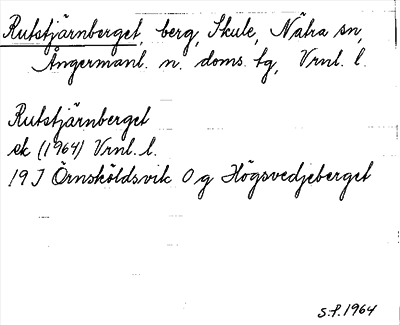 Rutstjärnberget, berg, Skule, Nätra sn,
Ångermanl. n. doms. tg, Vrnl. l.
Rutstjärnberget
ek (1964) Vrnl. l.
19 J Örnsköldsvik O g Högsvedjeberget
S.P. 1964